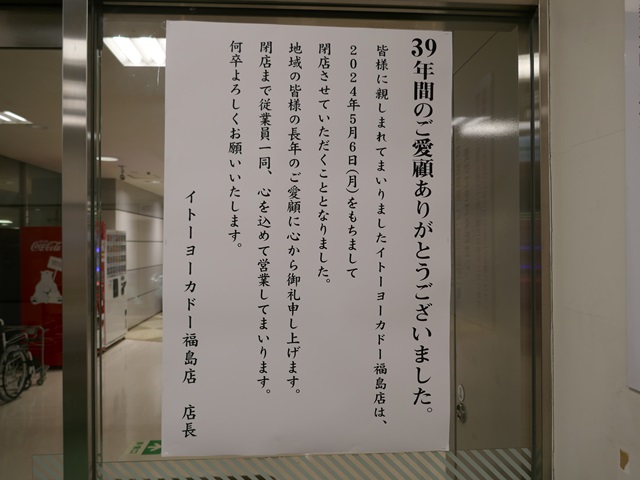 39年間のご愛顧ありがとうございました。
皆様に親しまれてまいりましたイトーヨーカドー福島店は、
2024年5月6日(月)をもちまして
閉店させていただくこととなりました。
地域の皆様の長年のご愛顧に心から御礼申し上げます。
閉店まで従業員一同、心を込めて営業してまいります。
何卒よろしくお願いいたします。
イトーヨーカドー福島店 店長
Coca-Cola